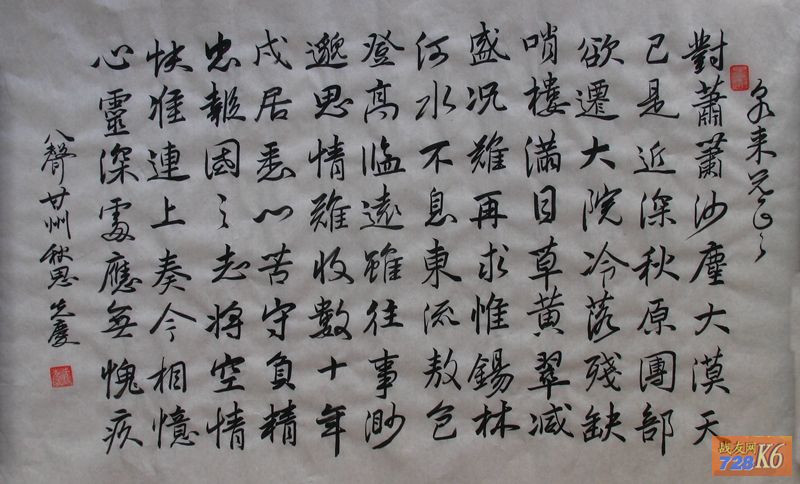 泉来兄正之
對蕭蕭沙塵大漠天
已是近深秋原團部
欲遷大院冷落殘缺
哨樓滿目草黃翠減
盛况難再求惟錫林
河水不息東流敖包
登高臨遠雖往事渺
邈思情難收數十年
戍居悉心苦守負精
忠報國之志將空情
快准連上奏今相憶
心靈深處應無愧疚
八聲甘州秋思
战友网
728K6